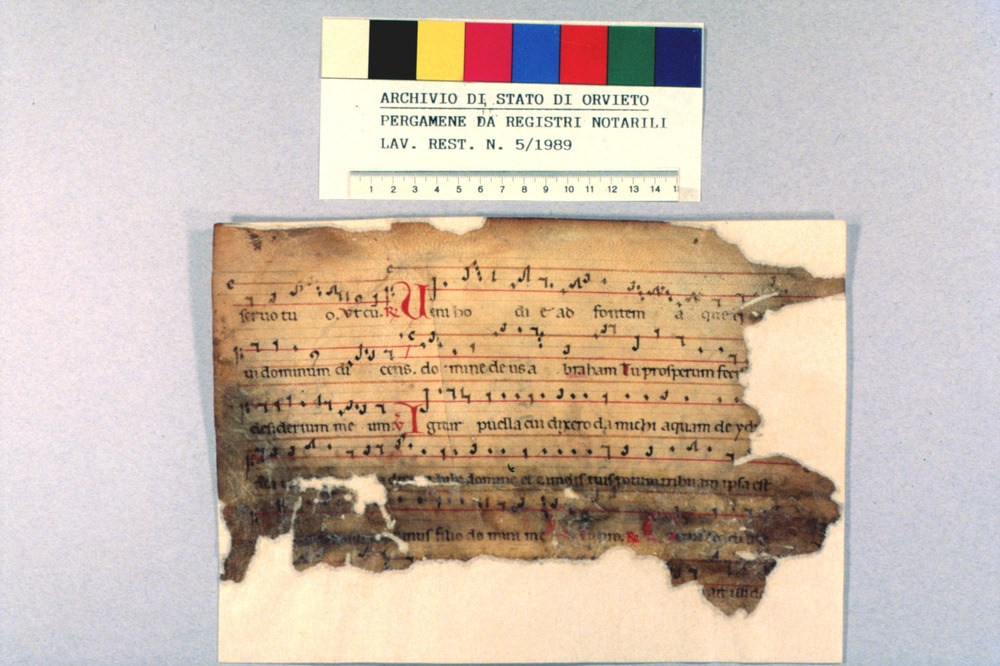 ARCHIVIO DI STATO DI ORVIETO
PERGAMENE DA REGISTRI NOTARILI
LAV. REST. N. 5/1989
1 2 3 4 5 6 7 8 9 10 11 12 13 14
seruo tu o. Vt cu. R Ueni ho di e ad fontem a que
ui dominum di cens. do mine deus a braham tu prosperum feci
desiderium me um V Igitur puella cui dixero da michi aquam de yd
domine et tuis potum tribuam ipsa est
mus filio do mini me pro. R
illi